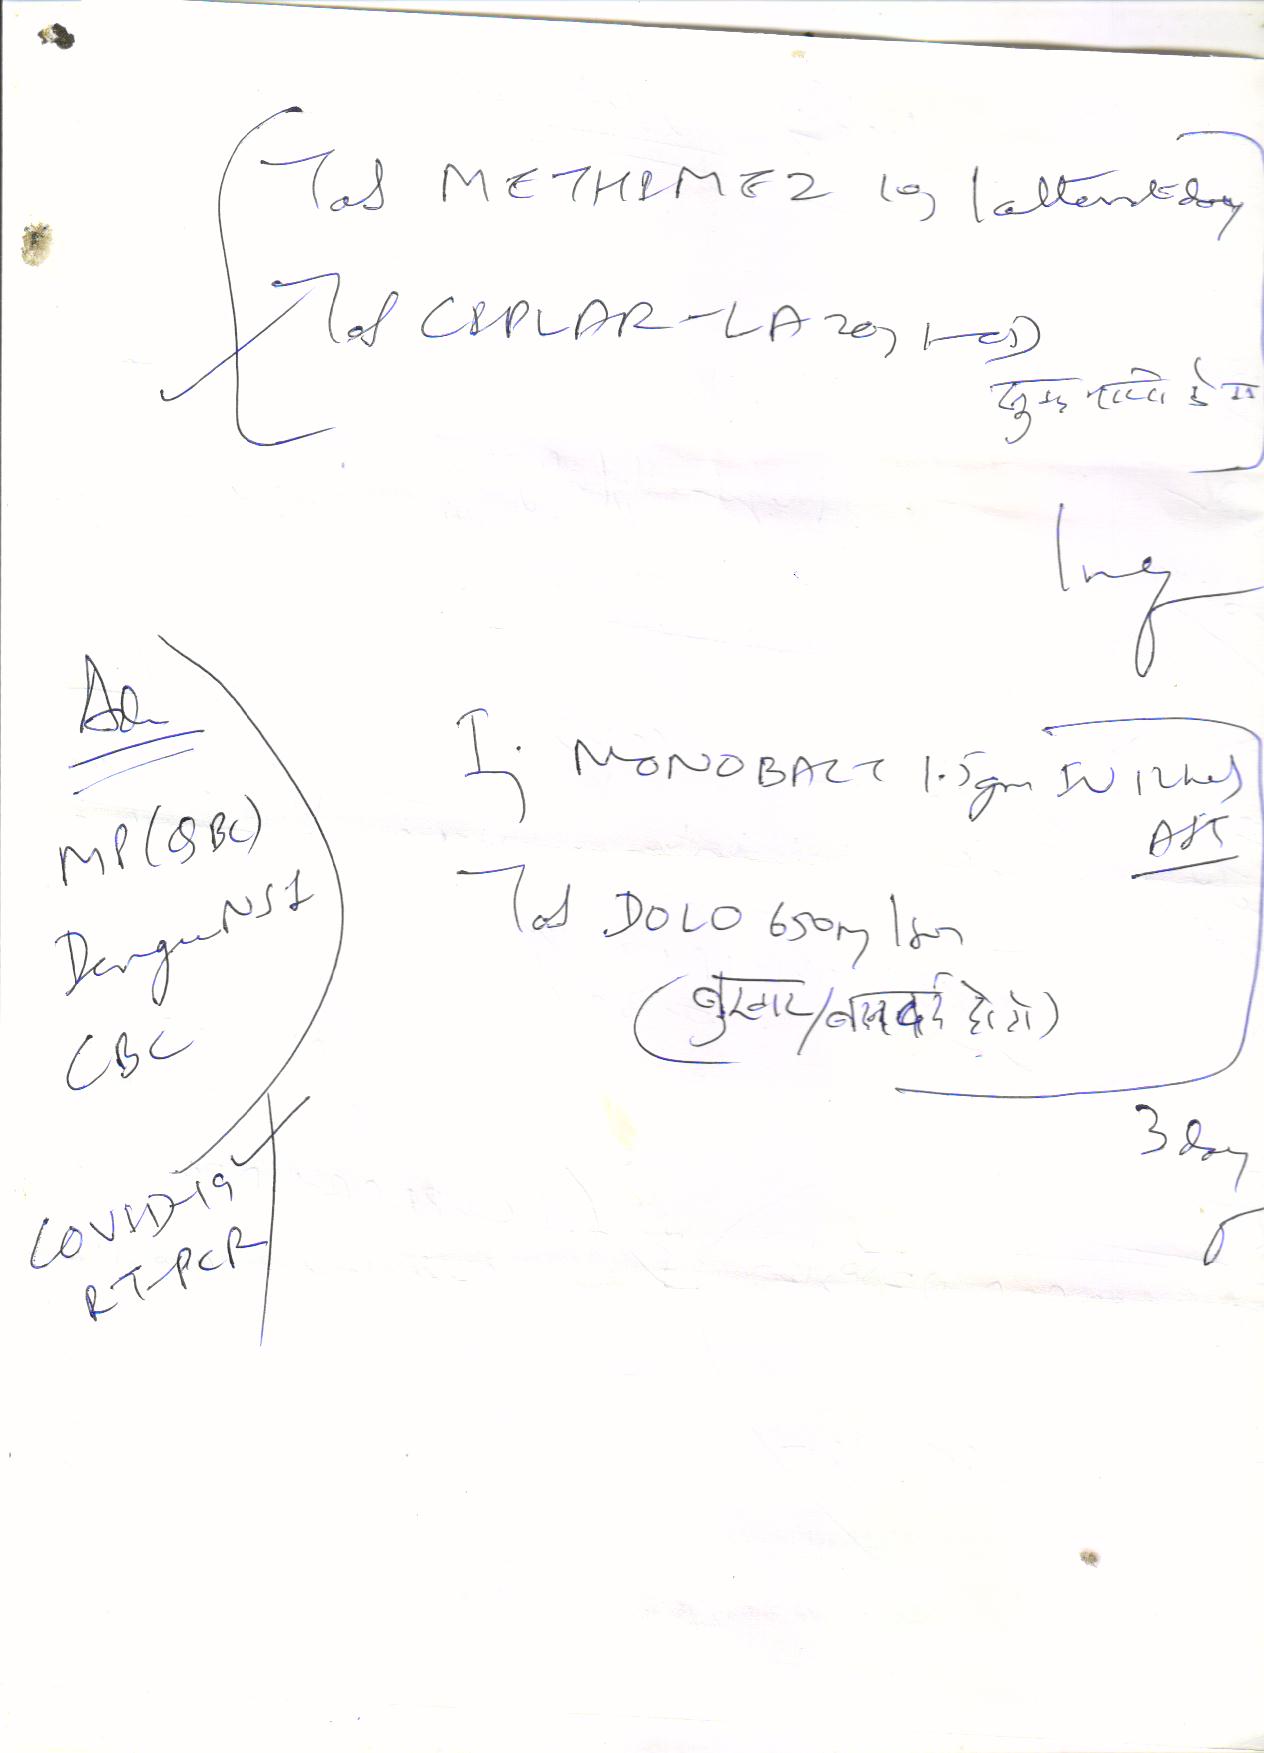 Tab METHIMEZ 10g 1 alternate day
Tab CIPLAR-LA 20g 1-OD
Adv
MP (QBC)
Dengue NS1
CBC
COVID-19
RT-PCR
Inj MONOBACT 1.5gm IV 12hrs
AST
Tab DOLO 650mg 1 sos
(बुखार/बदनदर्द होने)
3 day